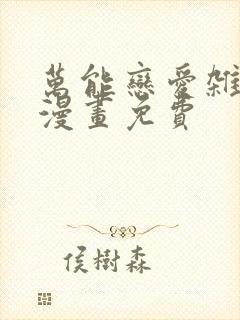 萬能戀愛雜
漫畫免費
侯樹森